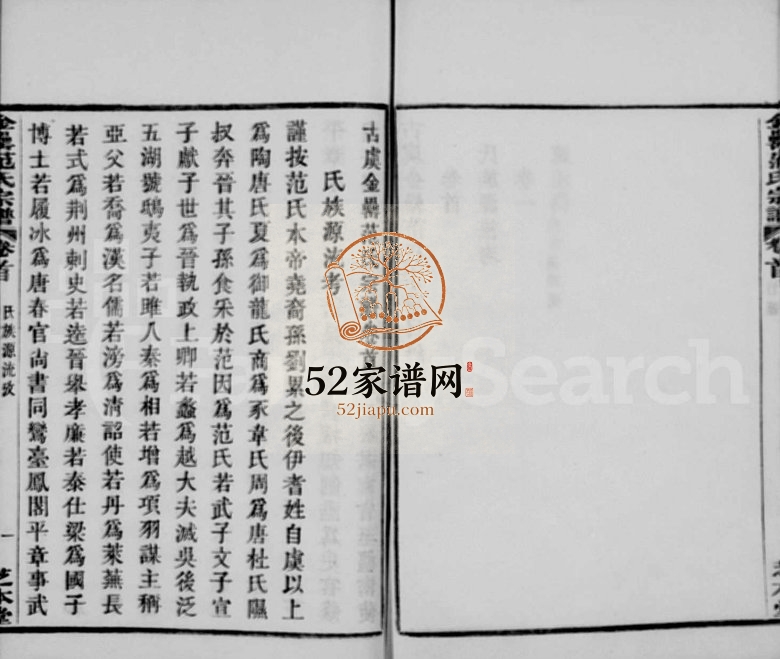 古虞金罍范氏宗譜卷首
氏族源流考
謹按范氏本帝堯裔孫劉累之後伊耆姓自虞以上
爲陶唐氏夏爲御龍氏商爲豕韋氏周爲唐杜氏隰
叔奔晉其子孫食采於范因爲范氏若武子文子宣
子獻子世爲晉執政上卿若蠡爲越大夫滅吳後泛
五湖號鴟夷子若雎入秦爲相若增爲項羽謀主稱
亞父若喬爲漢名儒若滂爲清詔使若丹爲萊蕪長
若式爲荆州刺史若逵晉舉孝廉若泰仕梁爲國子
博士若履冰爲唐春官尚書同鸞臺鳳閣平章事武
金罍范氏宗譜
卷首
氏族源流攷
一
芝本堂
52家谱网
52jiapu.com
Search